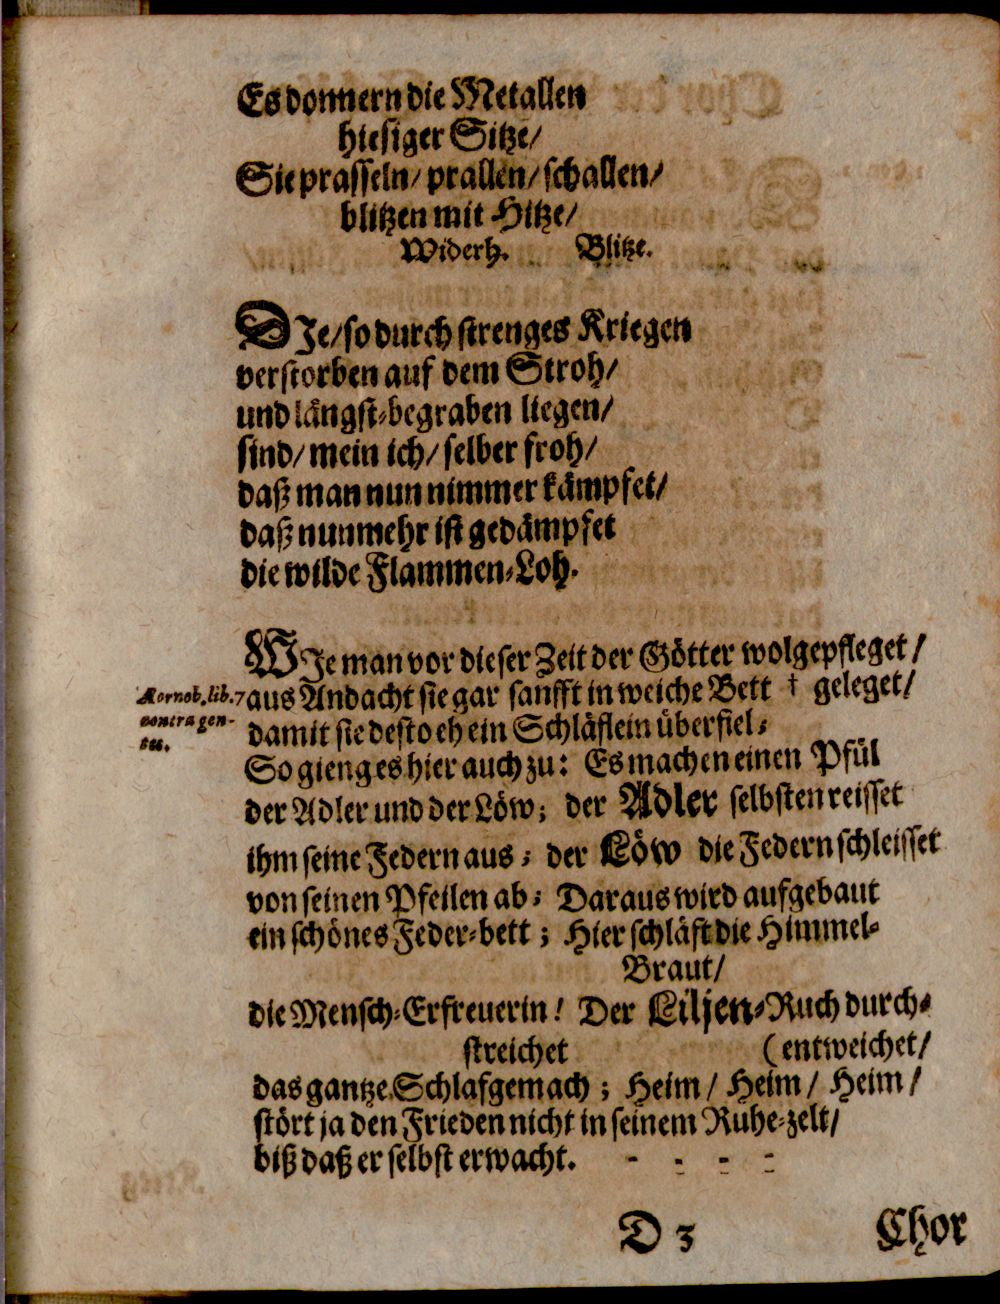 Es donnern die Metallen
hiesiger Sitze/
Sie prasseln/ prallen/ schallen/
blitzen mit Hitze/
Widerh. Blitze.
DIe/ so durch strenges Kriegen
verstorben auf dem Stroh/
und längst-begraben liegen/
sind/ mein ich/ selber froh/
daß man nun nimmer kämpfet/
daß nunmehr ist gedämpfet
die wilde Flammen-Loh.
WIe man vor dieser Zeit der Götter wolgepfleget/
aus Andacht sie gar sanfft in weiche Bett † geleget/
Aornob. lib. 7
contra gen-
tes.
damit sie desto eh ein Schläflein überfiel;
So gieng es hier auch zu: Es machen einen Pfül
der Adler und der Löw; der Adler selbsten reisset
ihm seine Federn aus; der Löw die Federn schleisset
von seinen Pfeilen ab; Daraus wird aufgebaut
ein schönes Feder-bett; Hier schläft die Himmel-
Braut/
die Mensch-Erfreuerin! Der Liljen-Ruch durch-
streichet (entweichet/
das gantze Schlafgemach; Heim/ Heim/ Heim/
stört ja den Frieden nicht in seinem Ruhe-zelt/
biß daß er selbst erwacht. - - - -
D 3 Chor